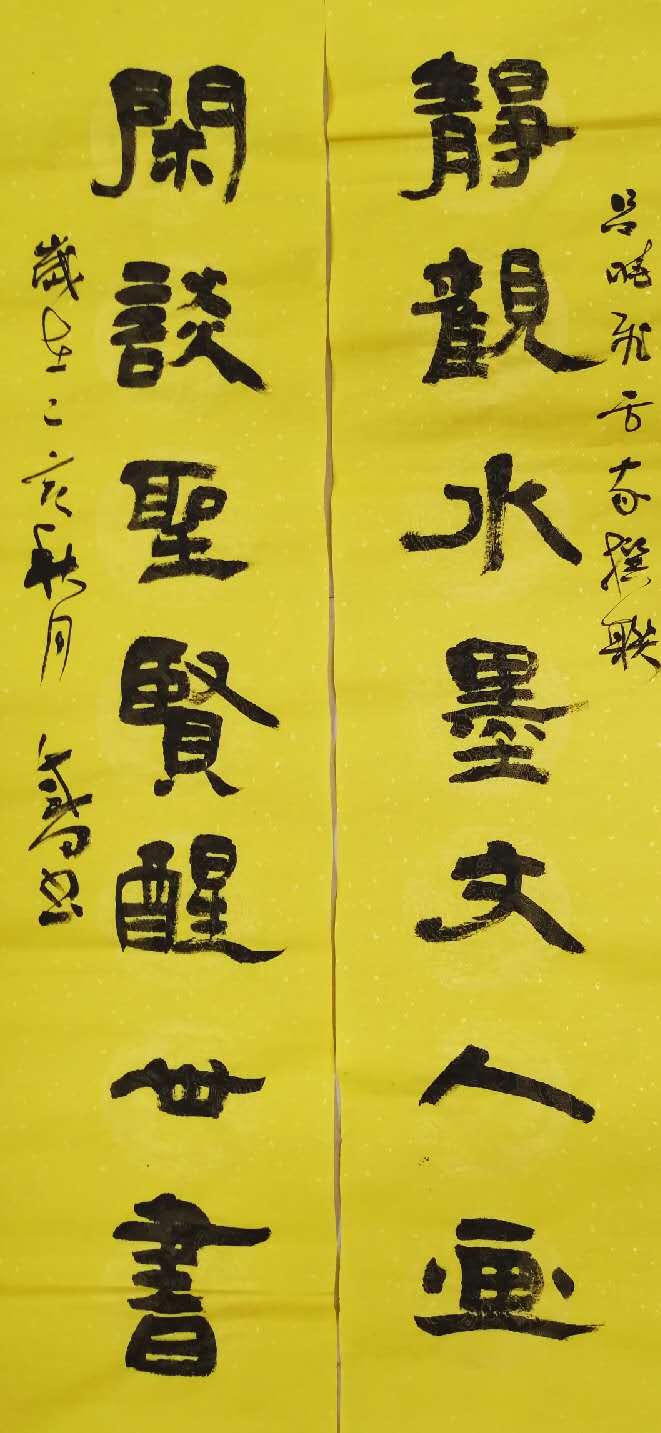 吕晓飞方家撰联
靜觀水墨文人画
閑談聖賢醒世書
歲在己亥秋月
書